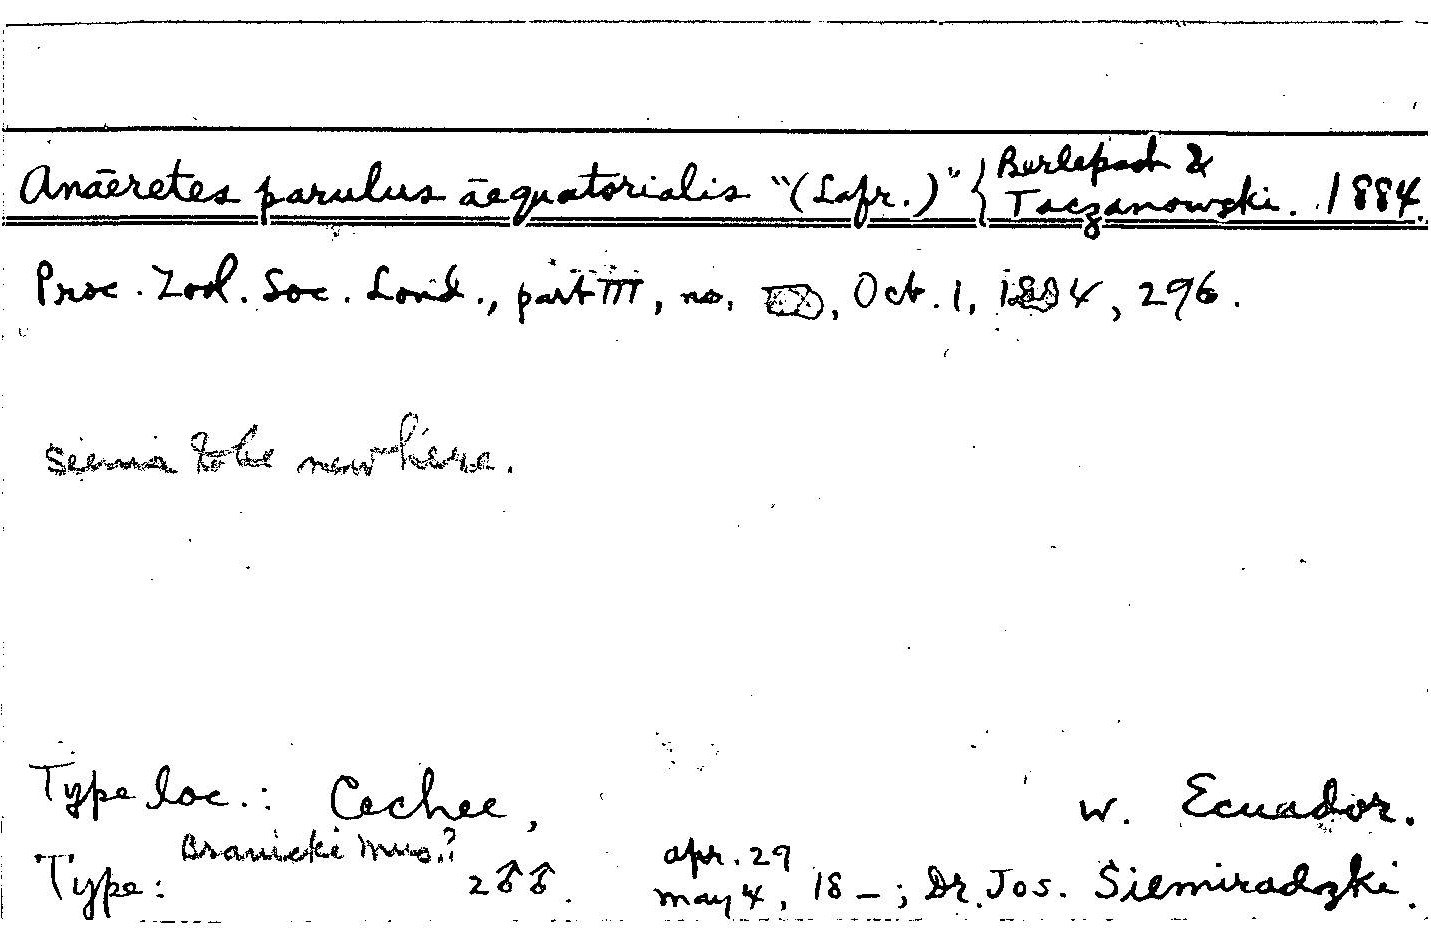 Anāeretes parulus āequatorialis "(Lafr.)" { Berlepsch & Taczanowski. 1884.
Proc. Zool. Soc. Lond., part III, no. , Oct. 1, 1884, 296.
seems to be new here.
Type loc.: Cechce, W. Ecuador.
Branicki Mus.? apr. 29
Type: 2 ♂♂. may 4, 18—; Dr. Jos. Siemiradzki.